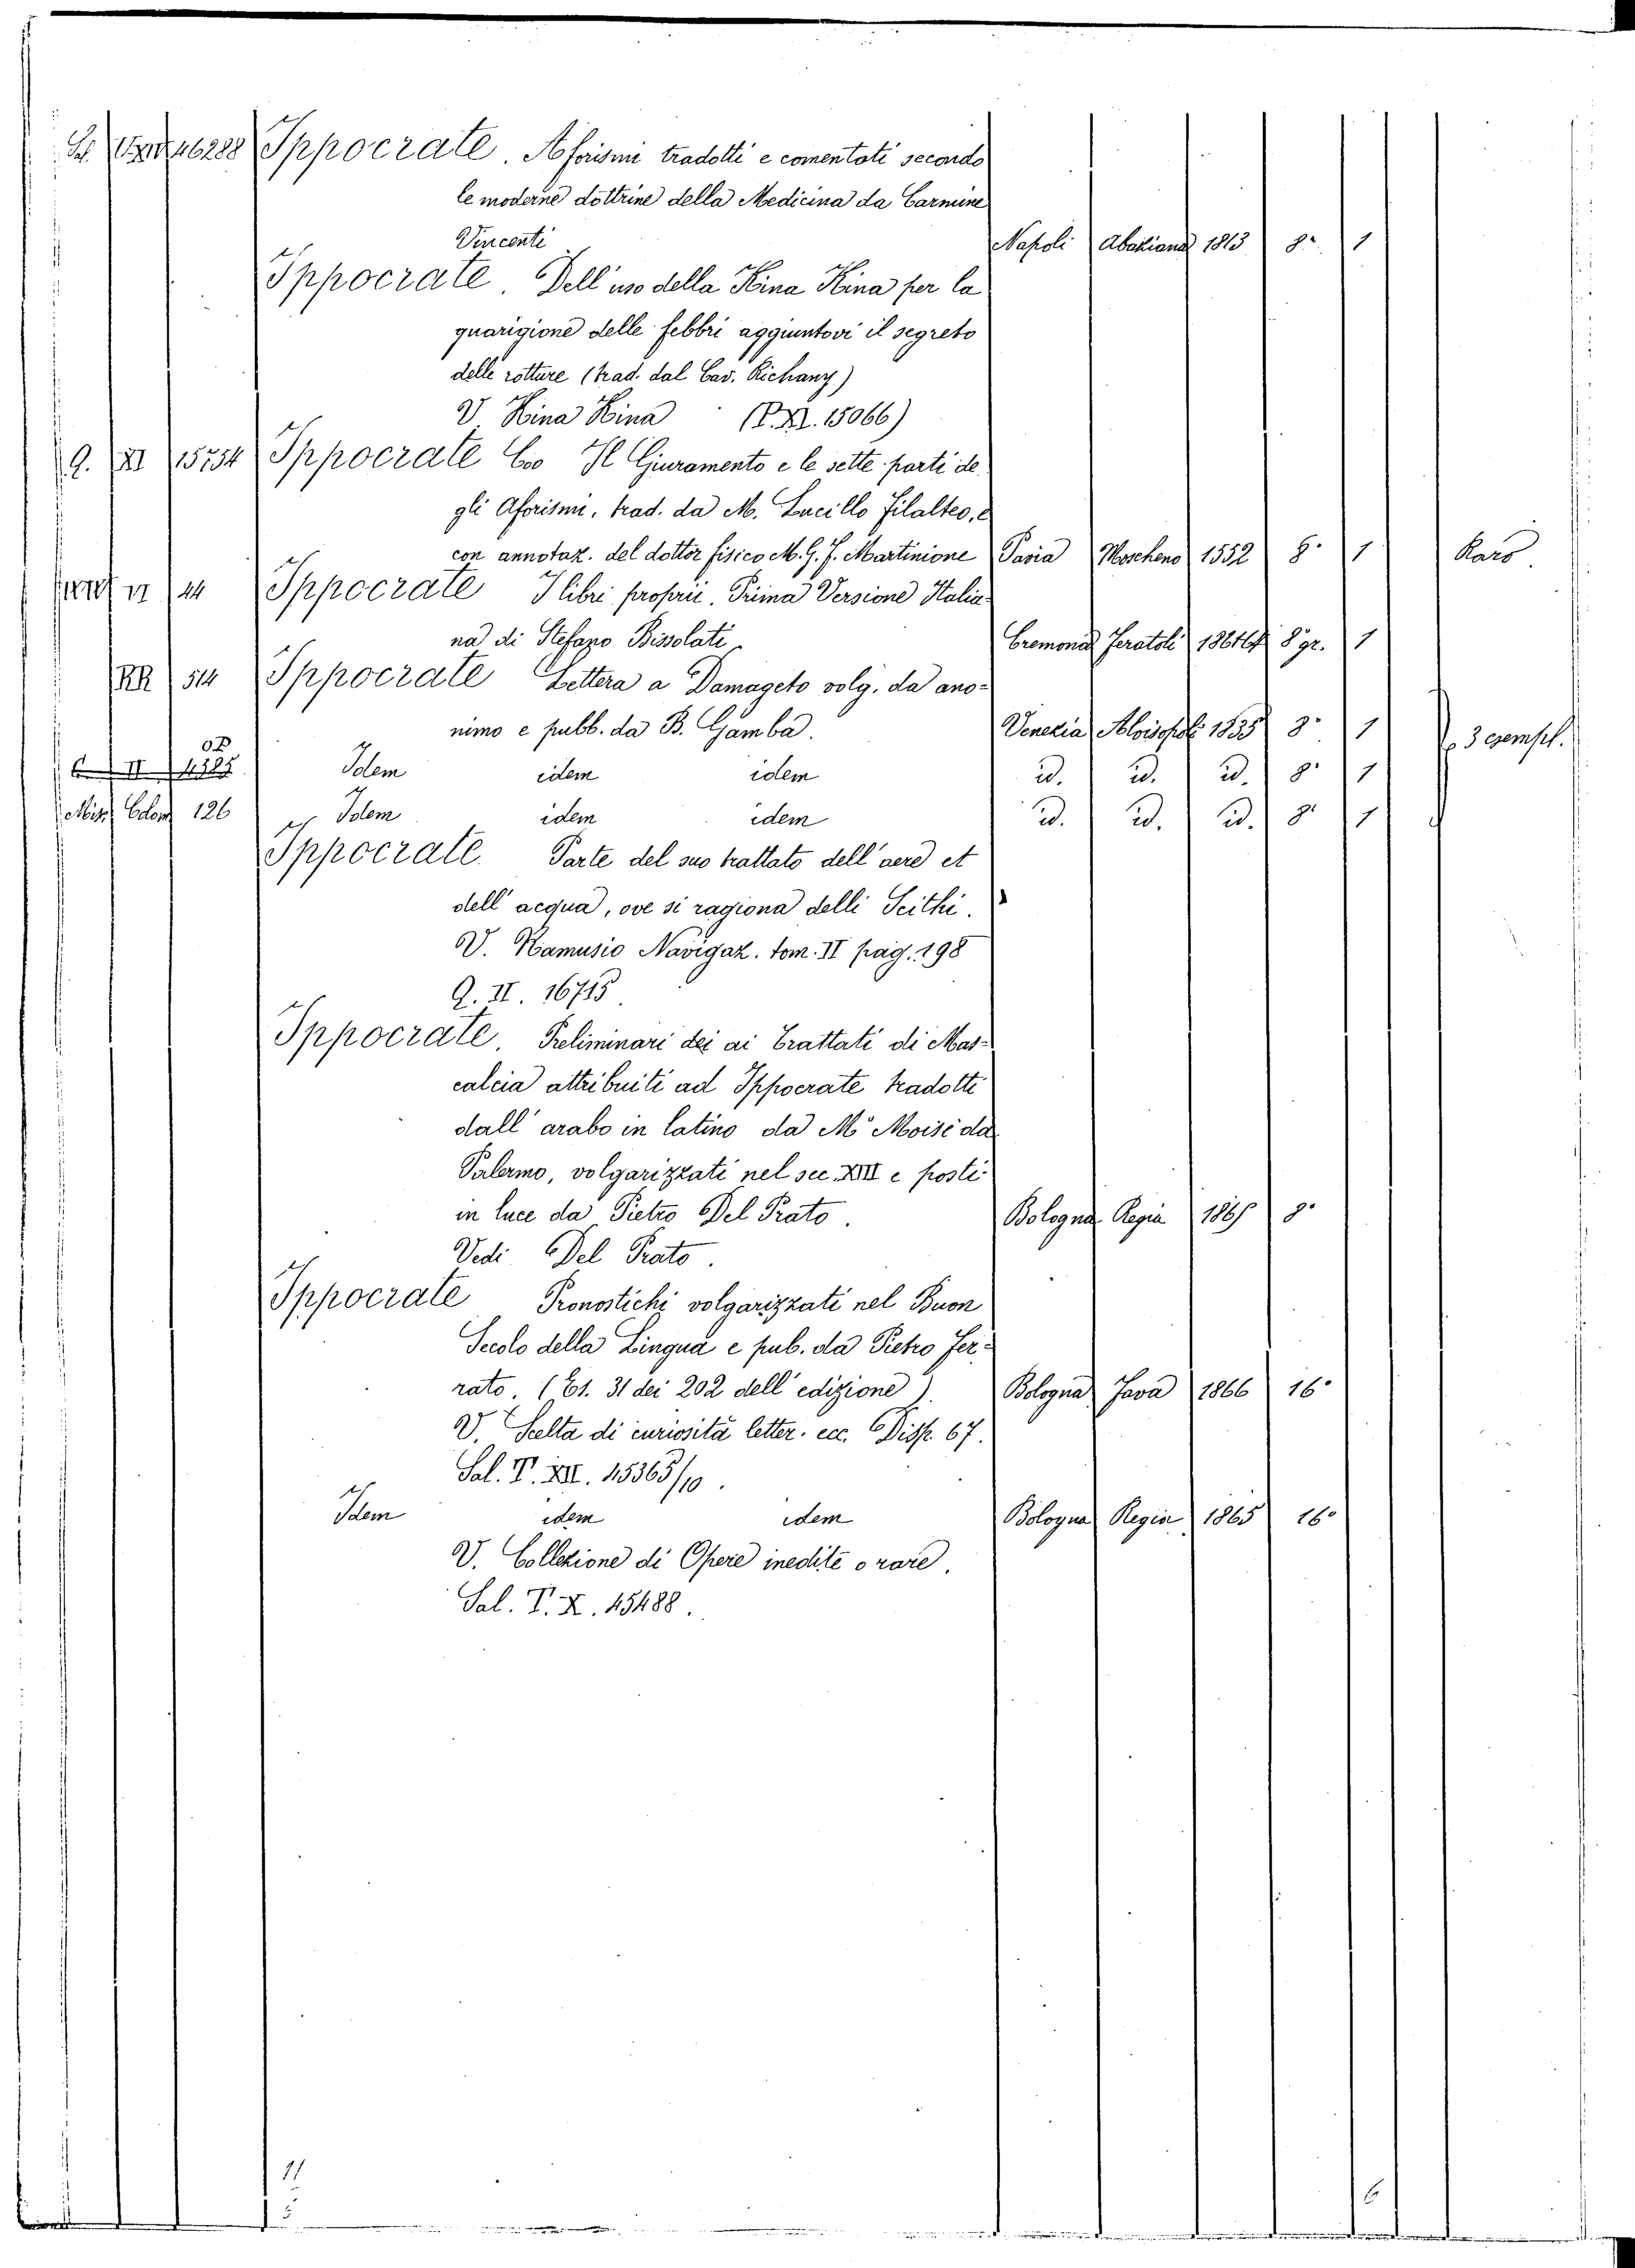 46288 Ippocrate. Aforismi tradotti e comentati secondo
le moderne dottrine della Medicina da Carmine
Vincenti Napoli Abaziana 1813 8° 1
Ippocrate. Dell'uso della Kina Kina per la
guarigione delle febbri aggiuntovi il segreto
delle rotture (trad. dal Cav. Richany)
V. Kina Kina (P. XI. 15066)
Q. XI 15754 Ippocrate Coo Il Giuramento e le sette parti de
gli Aforismi, trad. da M. Lucillo Filalteo, e
con annotaz. del dottor fisico M. G. F. Martinione Pavia Moscheno 1552 8° 1 Raro
VI 44 Ippocrate I libri proprii. Prima Versione Italia
na di Stefano Bissolati. Cremona Feratoli 8° gr. 1
RR 514 Ippocrate Lettera a Damageto volg. da ano=
nimo e pubb. da B. Gamba. Venezia Aloisopoli 1835 8° 1 3 esempl.
II Idem idem idem id. id. id. 8° 1
Misc. Colom 126 Idem idem idem id. id. id. 8° 1
Ippocrate. Parte del suo trattato dell'aere et
dell'acqua, ove si ragiona delli Scithi.
V. Ramusio Navigaz. tom. II pag. 198
Q. II. 16715
Ippocrate. Preliminari dei ai Trattati di Mas=
calcia attribuiti ad Ippocrate tradotti
dall'arabo in latino da M° Moisè da
Palermo, volgarizzati nel sec. XIII e posti
in luce da Pietro Del Prato. Bologna Regia 1865 8°
Vedi Del Prato.
Ippocrate Pronostichi volgarizzati nel Buon
Secolo della Lingua e pub. da Pietro Fer=
rato. (Es. 31 dei 202 dell'edizione). Bologna Fava 1866 16°
V. Scelta di curiosità letter. ecc. Disp. 67.
Sal. V. XII. 45365/10.
Idem idem idem Bologna Regia 1865 16°
V. Collezione di Opere inedite o rare.
Sal. V. X. 45488.
11 6
5